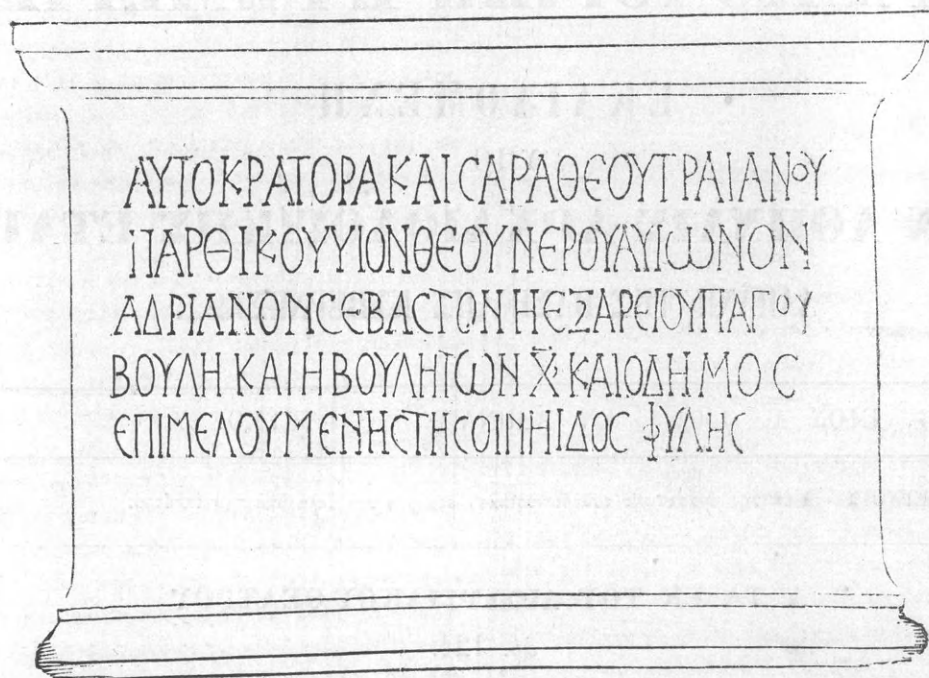 ΑΥΤΟΚΡΑΤΟΡΑΚΑΙϹΑΡΑΘΕΟΥΤΡΑΙΑΝΟΥ
ΠΑΡΘΙΚΟΥΥΙΟΝΘΕΟΥΝΕΡΟΥΑΥΙωΝΟΝ
ΑΔΡΙΑΝΟΝϹΕΒΑϹΤΟΝΗΕΞΑΡΕΙΟΥΠΑΓΟ
ΒΟΥΛΗΚΑΙΗΒΟΥΛΗΤωΝ Χ ΚΑΙΟΔΗΜΟϹ
ΕΠΙΜΕΛΟΥΜΕΝΗϹΤΗϹΟΙΝΗΙΔΟϹ ΦΥΛΗϹ